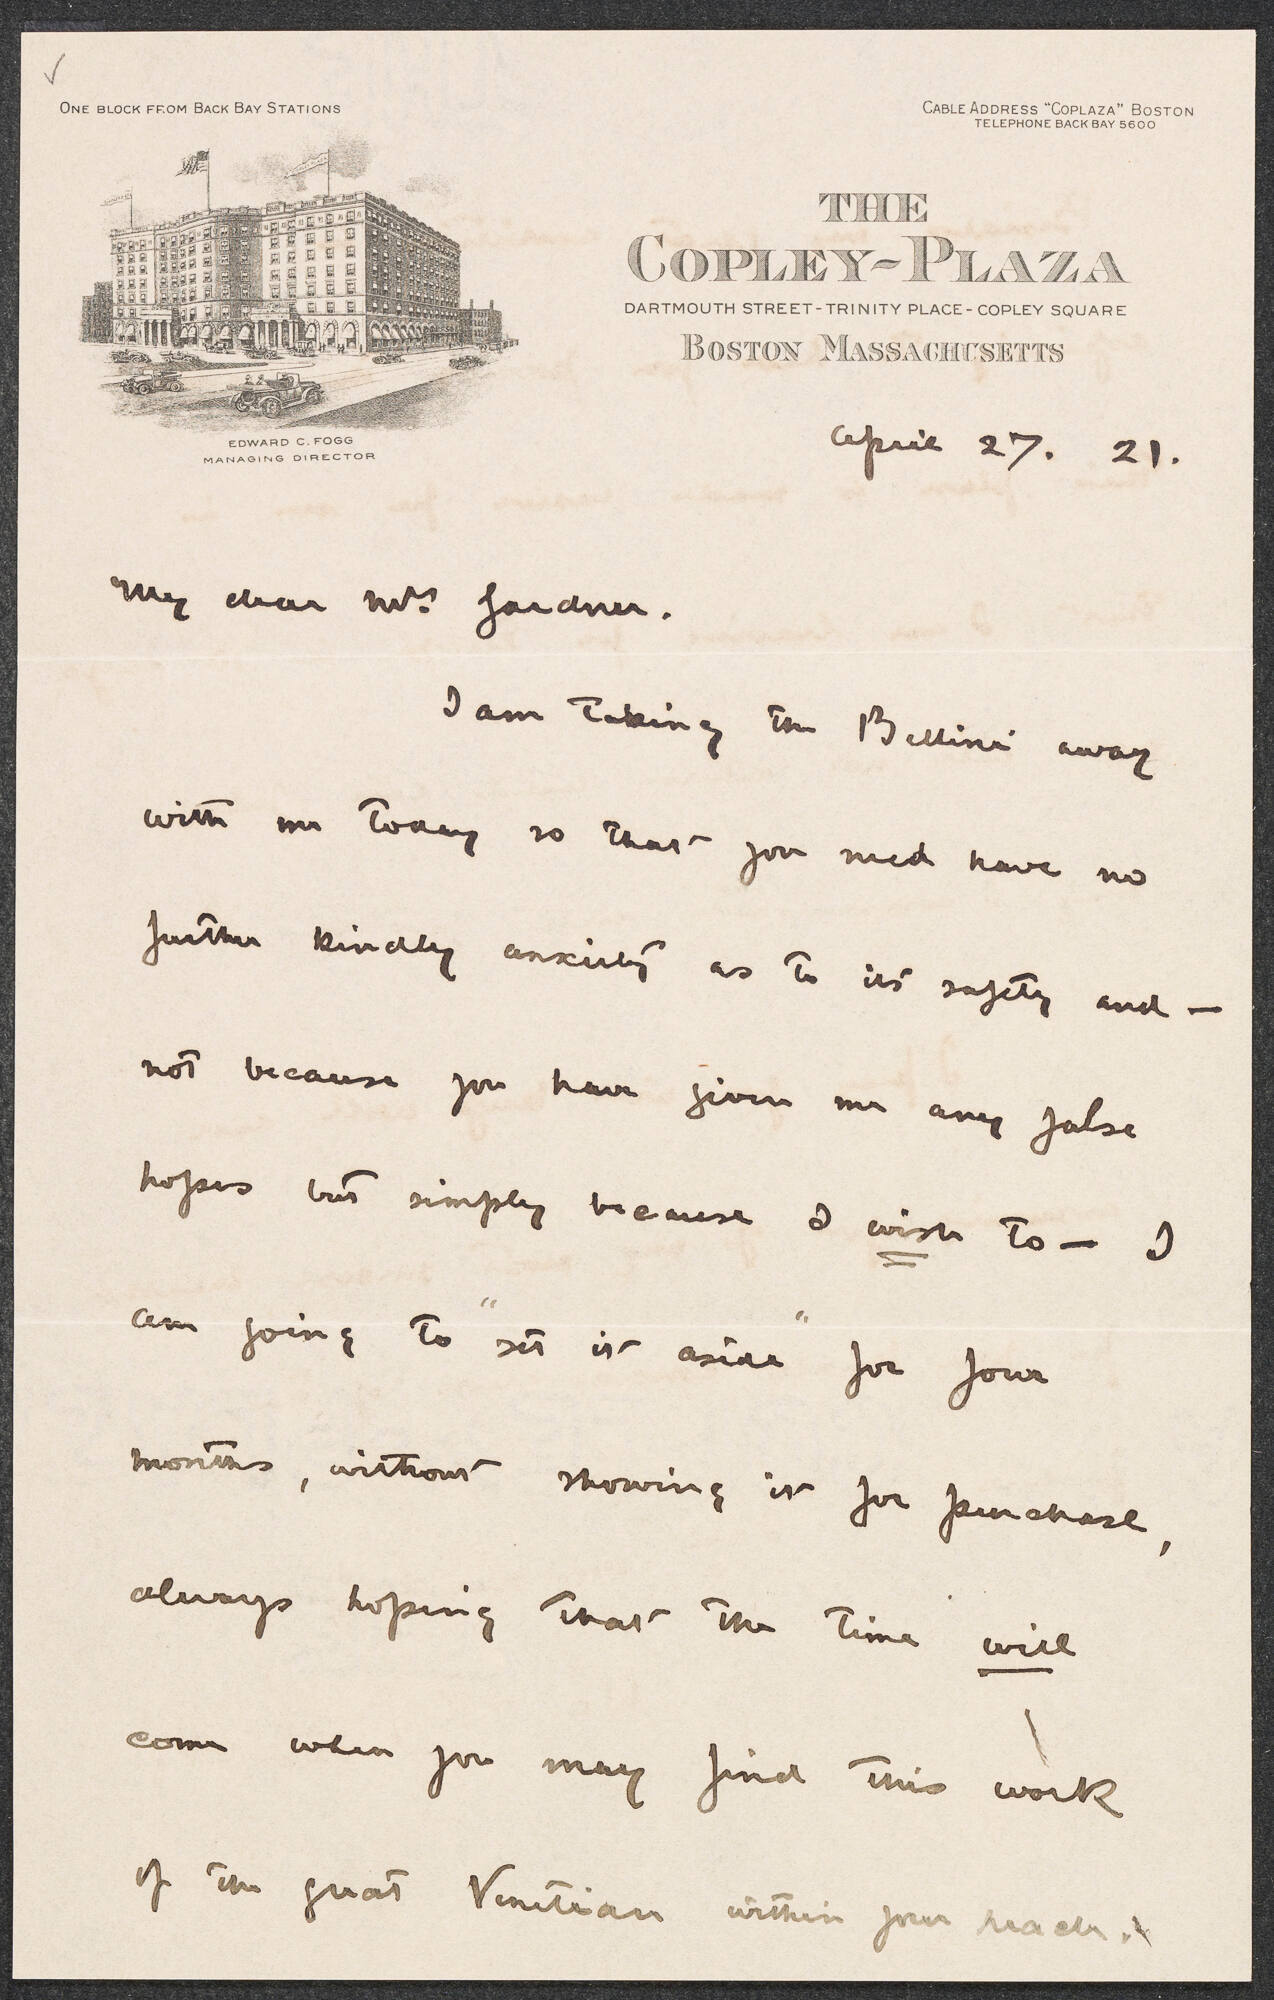 ONE BLOCK FROM BACK BAY STATIONS
CABLE ADDRESS "COPLAZA" BOSTON
TELEPHONE BACK BAY 5600
THE
COPLEY-PLAZA
DARTMOUTH STREET-TRINITY PLACE-COPLEY SQUARE
BOSTON MASSACHUSETTS
EDWARD C. FOGG
MANAGING DIRECTOR
April 27. 21.
My dear Mrs. Gardner.
I am taking the Bellini away
with me today so that you need have no
further kindly anxiety as to its safety and —
not because you have given me any false
hopes but simply because I wish to — I
am going to "set it aside" for four
months, without showing it for purchase,
always hoping that the time will
come when you may find this work
of the great Venetian within your reach.